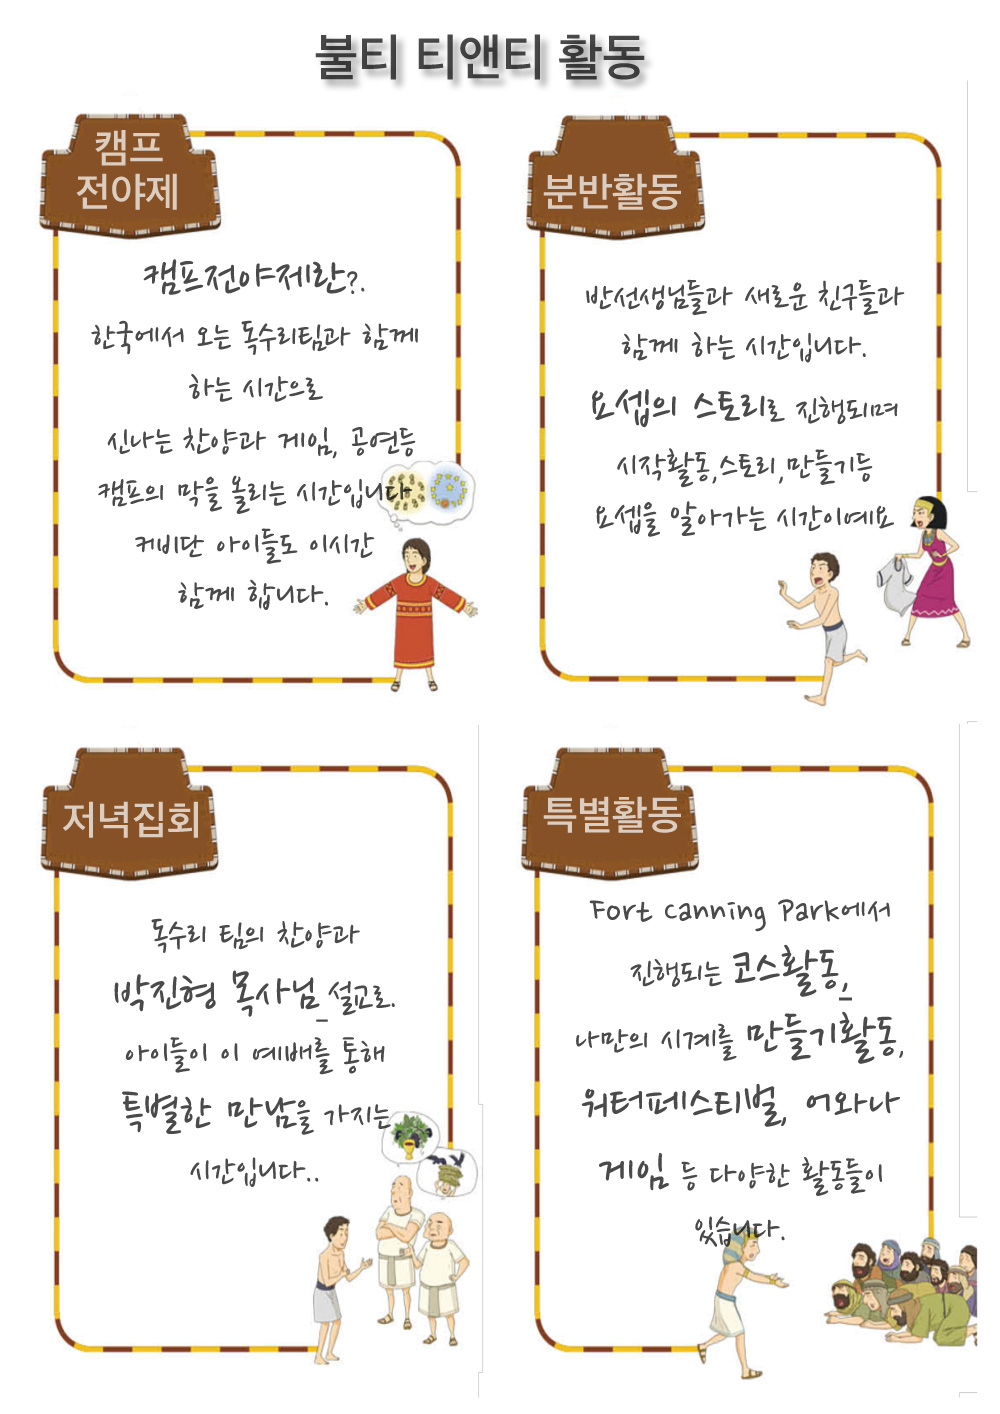 불티 티앤티 활동
캠프
전야제
캠프전야제란?.
한국에서 오는 독수리팀과 함께
하는 시간으로
신나는 찬양과 게임, 공연등
캠프의 막을 올리는 시간입니다
커비단 아이들도 이시간
함께 합니다.
분반활동
반선생님들과 새로운 친구들과
함께 하는 시간입니다.
요셉의 스토리로 진행되며
시작활동,스토리,만들기등
요셉을 알아가는 시간이예요
저녁집회
독수리 팀의 찬양과
박진형 목사님 설교로.
아이들이 이 예배를 통해
특별한 만남을 가지는
시간입니다..
특별활동
Fort Canning Park에서
진행되는 코스활동,
나만의 시계를 만들기활동,
워터페스티벌, 어와나
게임 등 다양한 활동들이
있습니다.